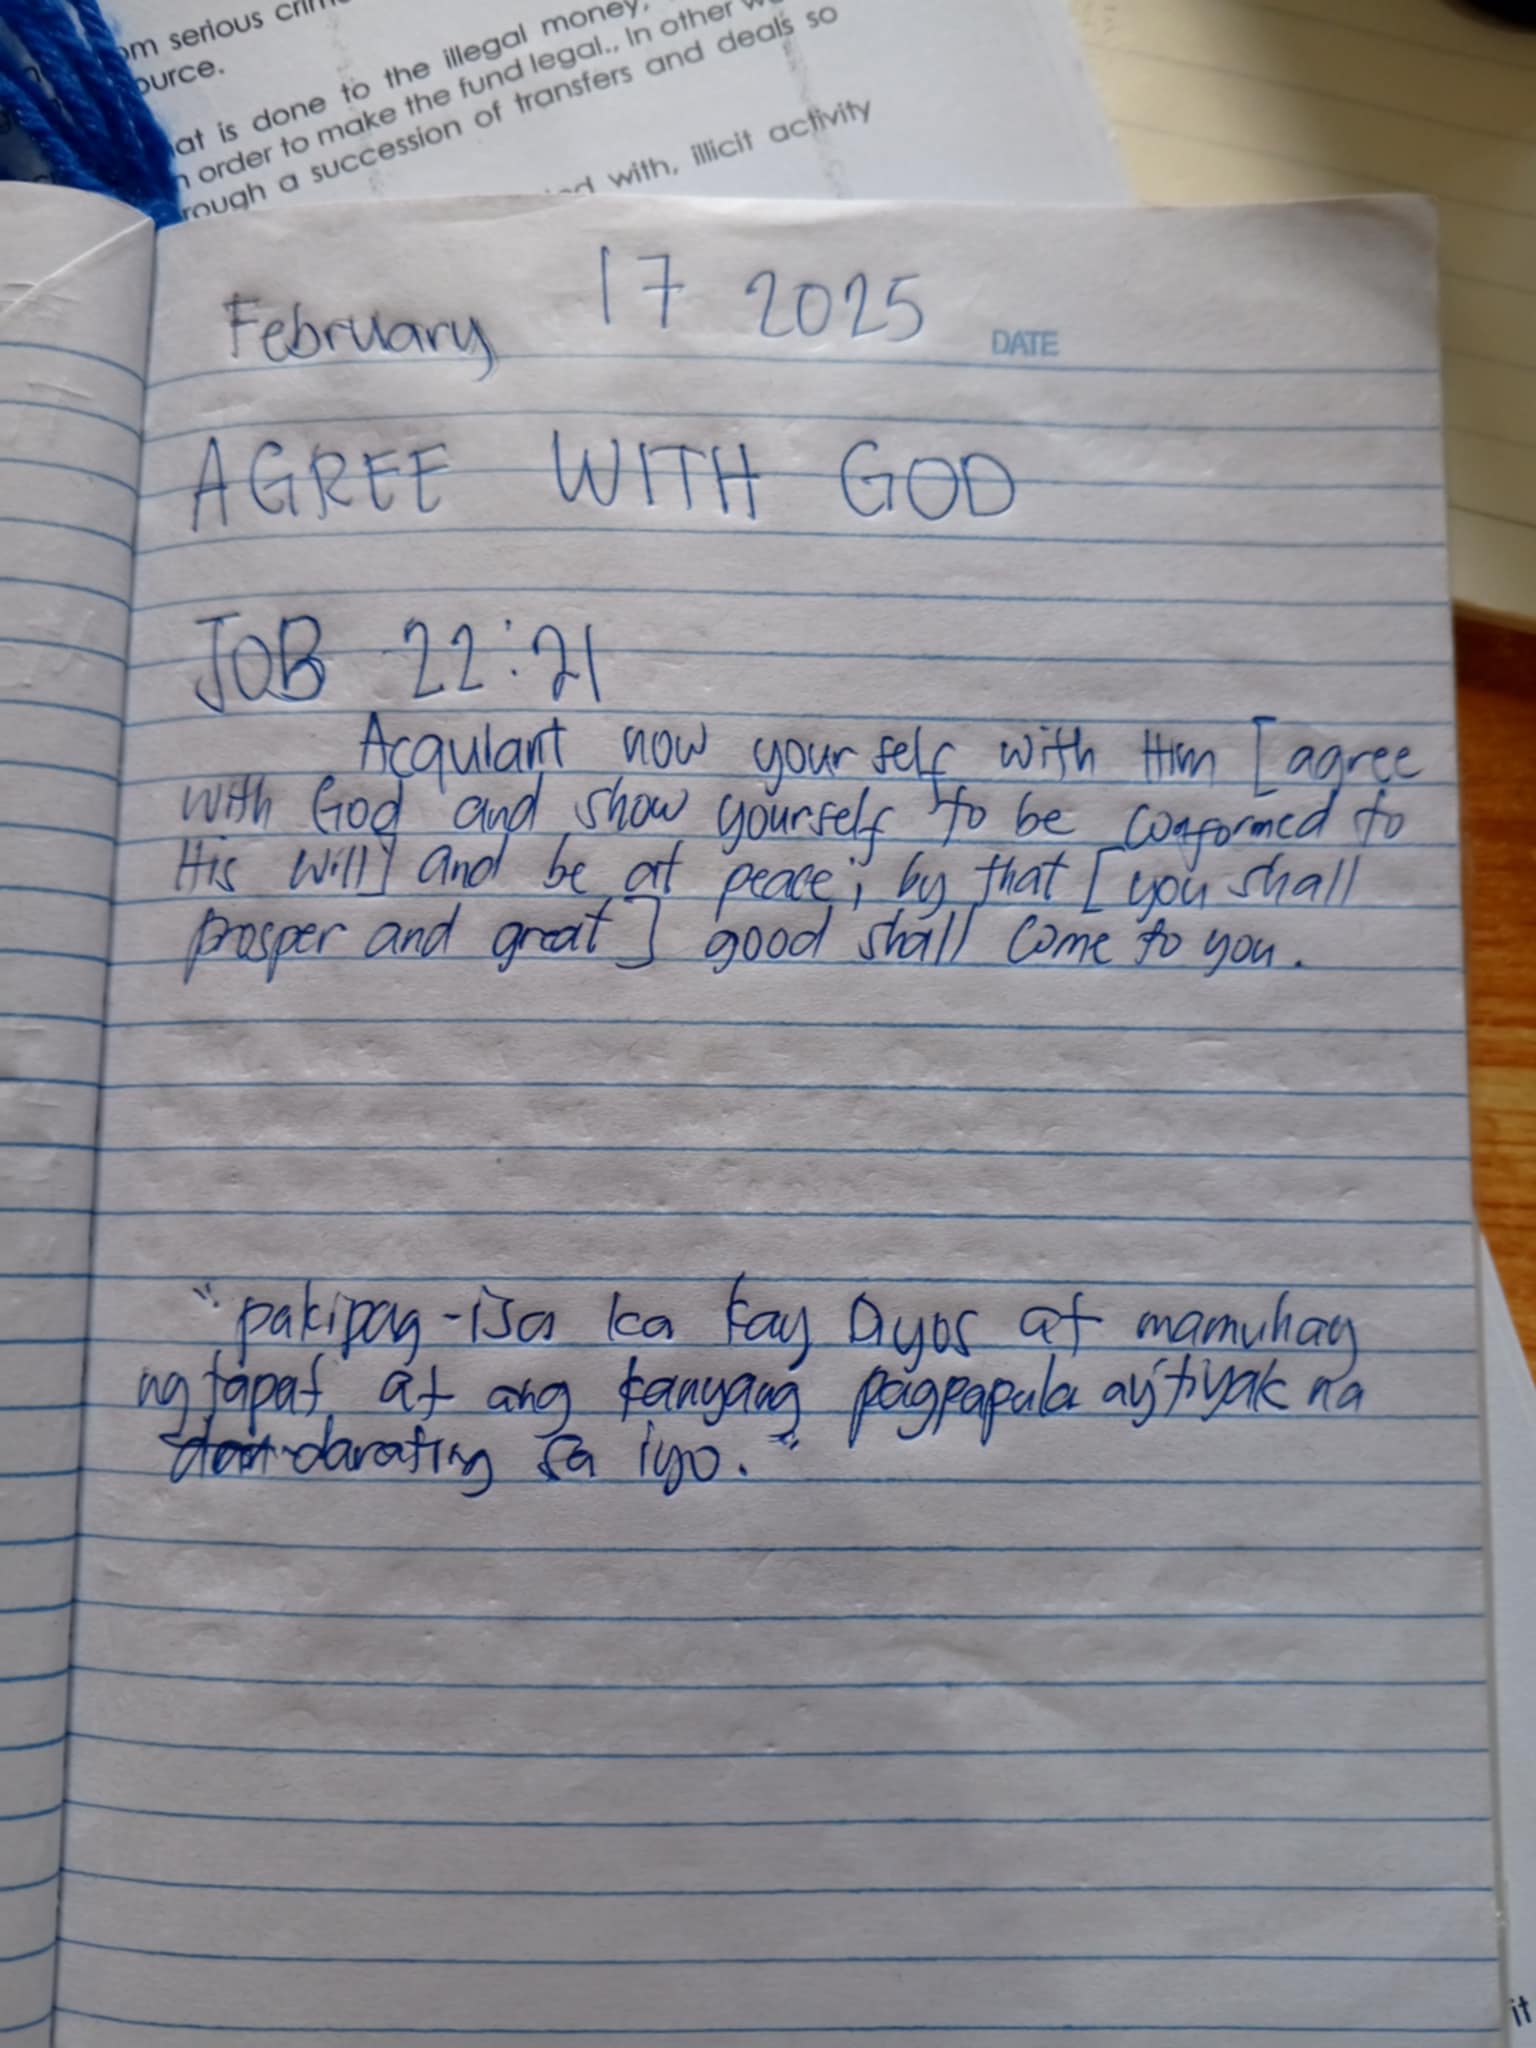 om serious
ource.
at is done to the illegal money,
order to make the fund legal., In other
rough a succession of transfers and deals so
with, illicit activity
February 17 2025
DATE
AGREE WITH GOD
JOB 22:21
Acquiant now your self with Him [agree
with God and show yourself to be conformed to
His will] and be at peace; by that [you shall
prosper and great] good shall come to you.
"pakipag-isa ka kay Diyos at mamuhay
ng tapat at ang kanyang pagpapala ay tiyak na
darating sa iyo."
it